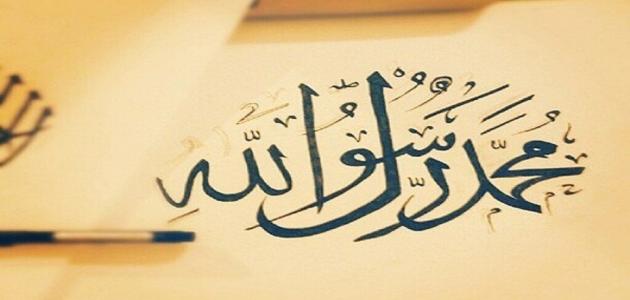 مُحَمَّد رَّسُوْلُ اللهِ